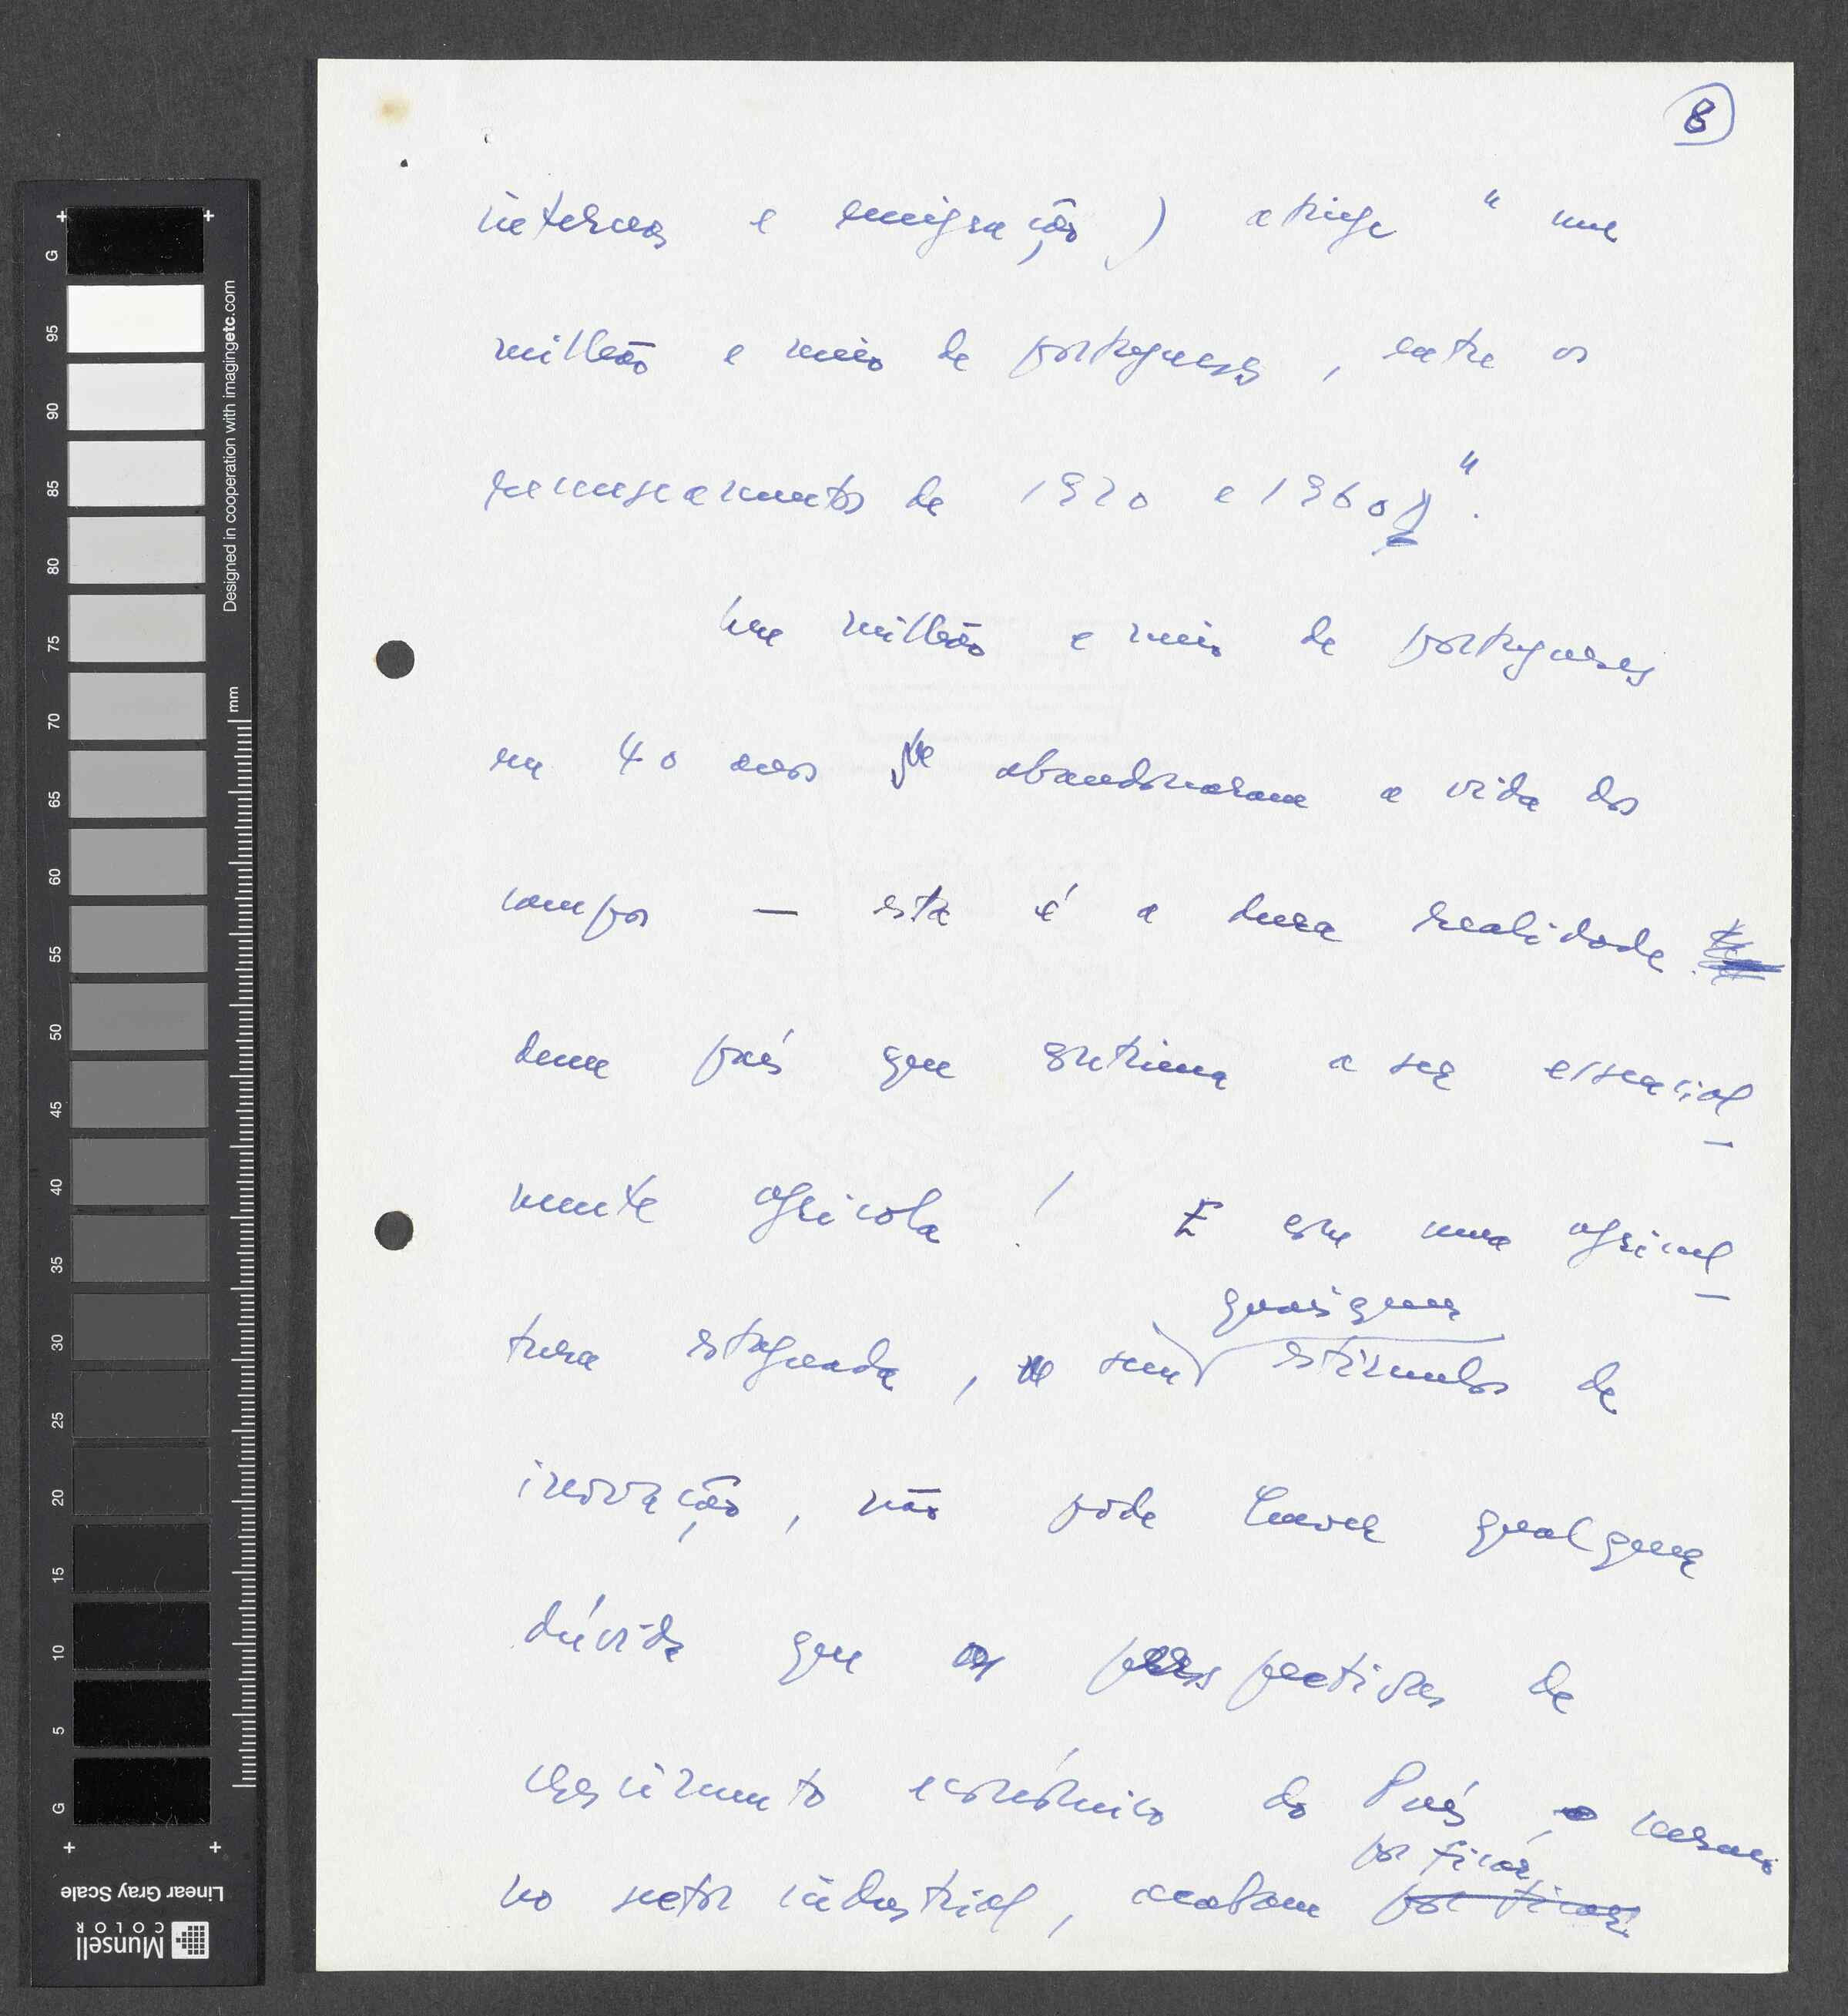 8
internas e emigração) atinge "um
milhão e meio de portugueses, entre os
recenseamentos de 1920 e 1960".
Um milhão e meio de portugueses
em 40 anos abandonaram a vida dos
campos — esta é a dura realidade
dum país que continua a ser essencial-
mente agrícola! E com uma agricul-
tura estagnada, sem quaisquer estímulos de
inovação, não pode haver qualquer
dúvida que as perspectivas de
crescimento económico do País, mesmo
no sector industrial, acabam por ficar
por ficar
G
95
90
85
80
75
70
65
60
55
50
45
40
35
30
25
20
15
10
5
G
Designed in cooperation with imagingetc.com
mm
Linear Gray Scale
Munsell
COLOR